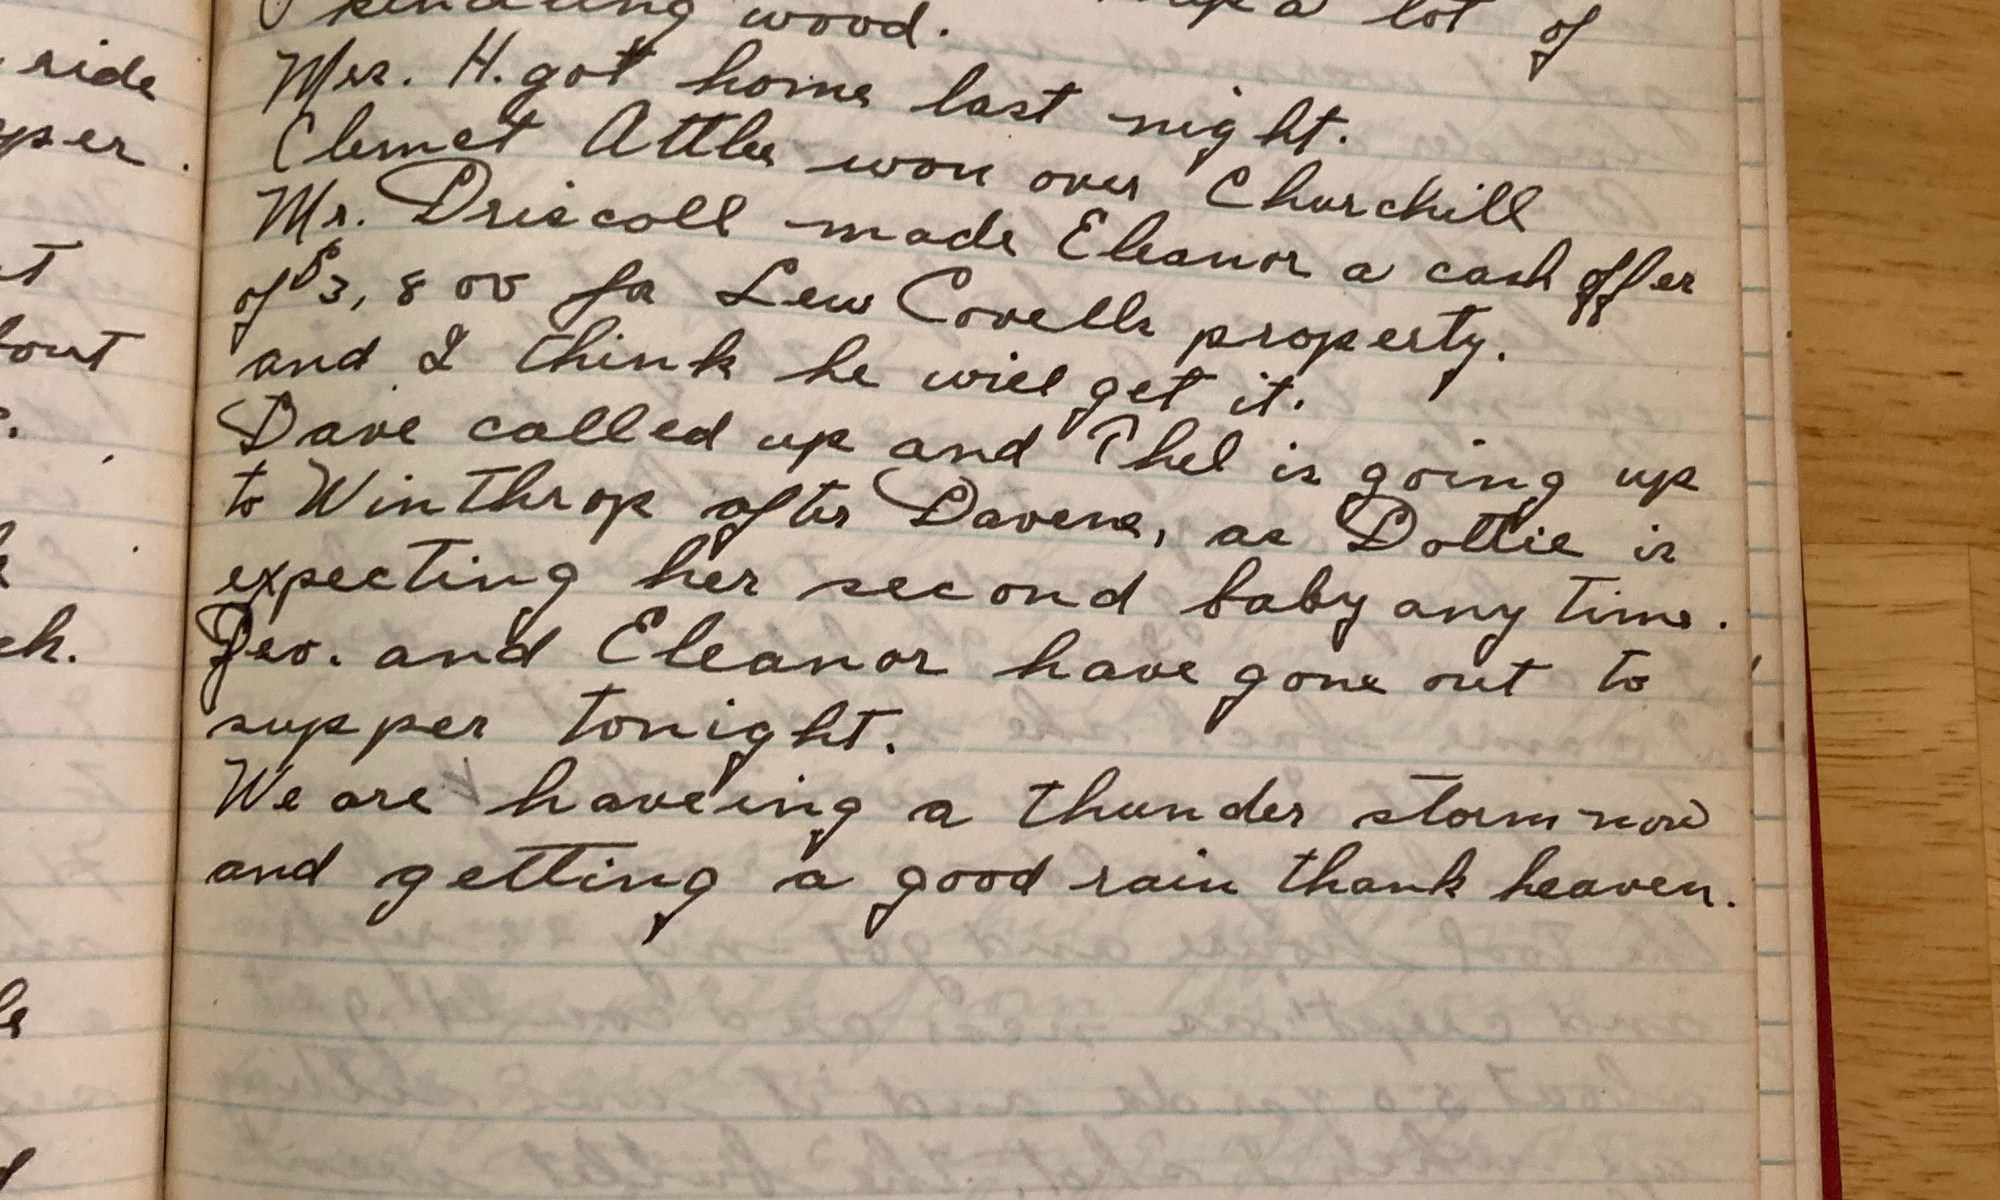 ride
per.
out
ch.
a lot of
kindling wood.
Mrs. H. got home last night.
Clemet Attlee won over Churchill
Mr. Driscoll made Eleanor a cash offer
of $3,800 for Lew Covells property.
and I think he will get it.
Dave called up and Thel is going up
to Winthrop after Davene, as Dottie is
expecting her second baby any time.
Geo. and Eleanor have gone out to
supper tonight.
We are haveing a thunder storm now
and getting a good rain thank heaven.